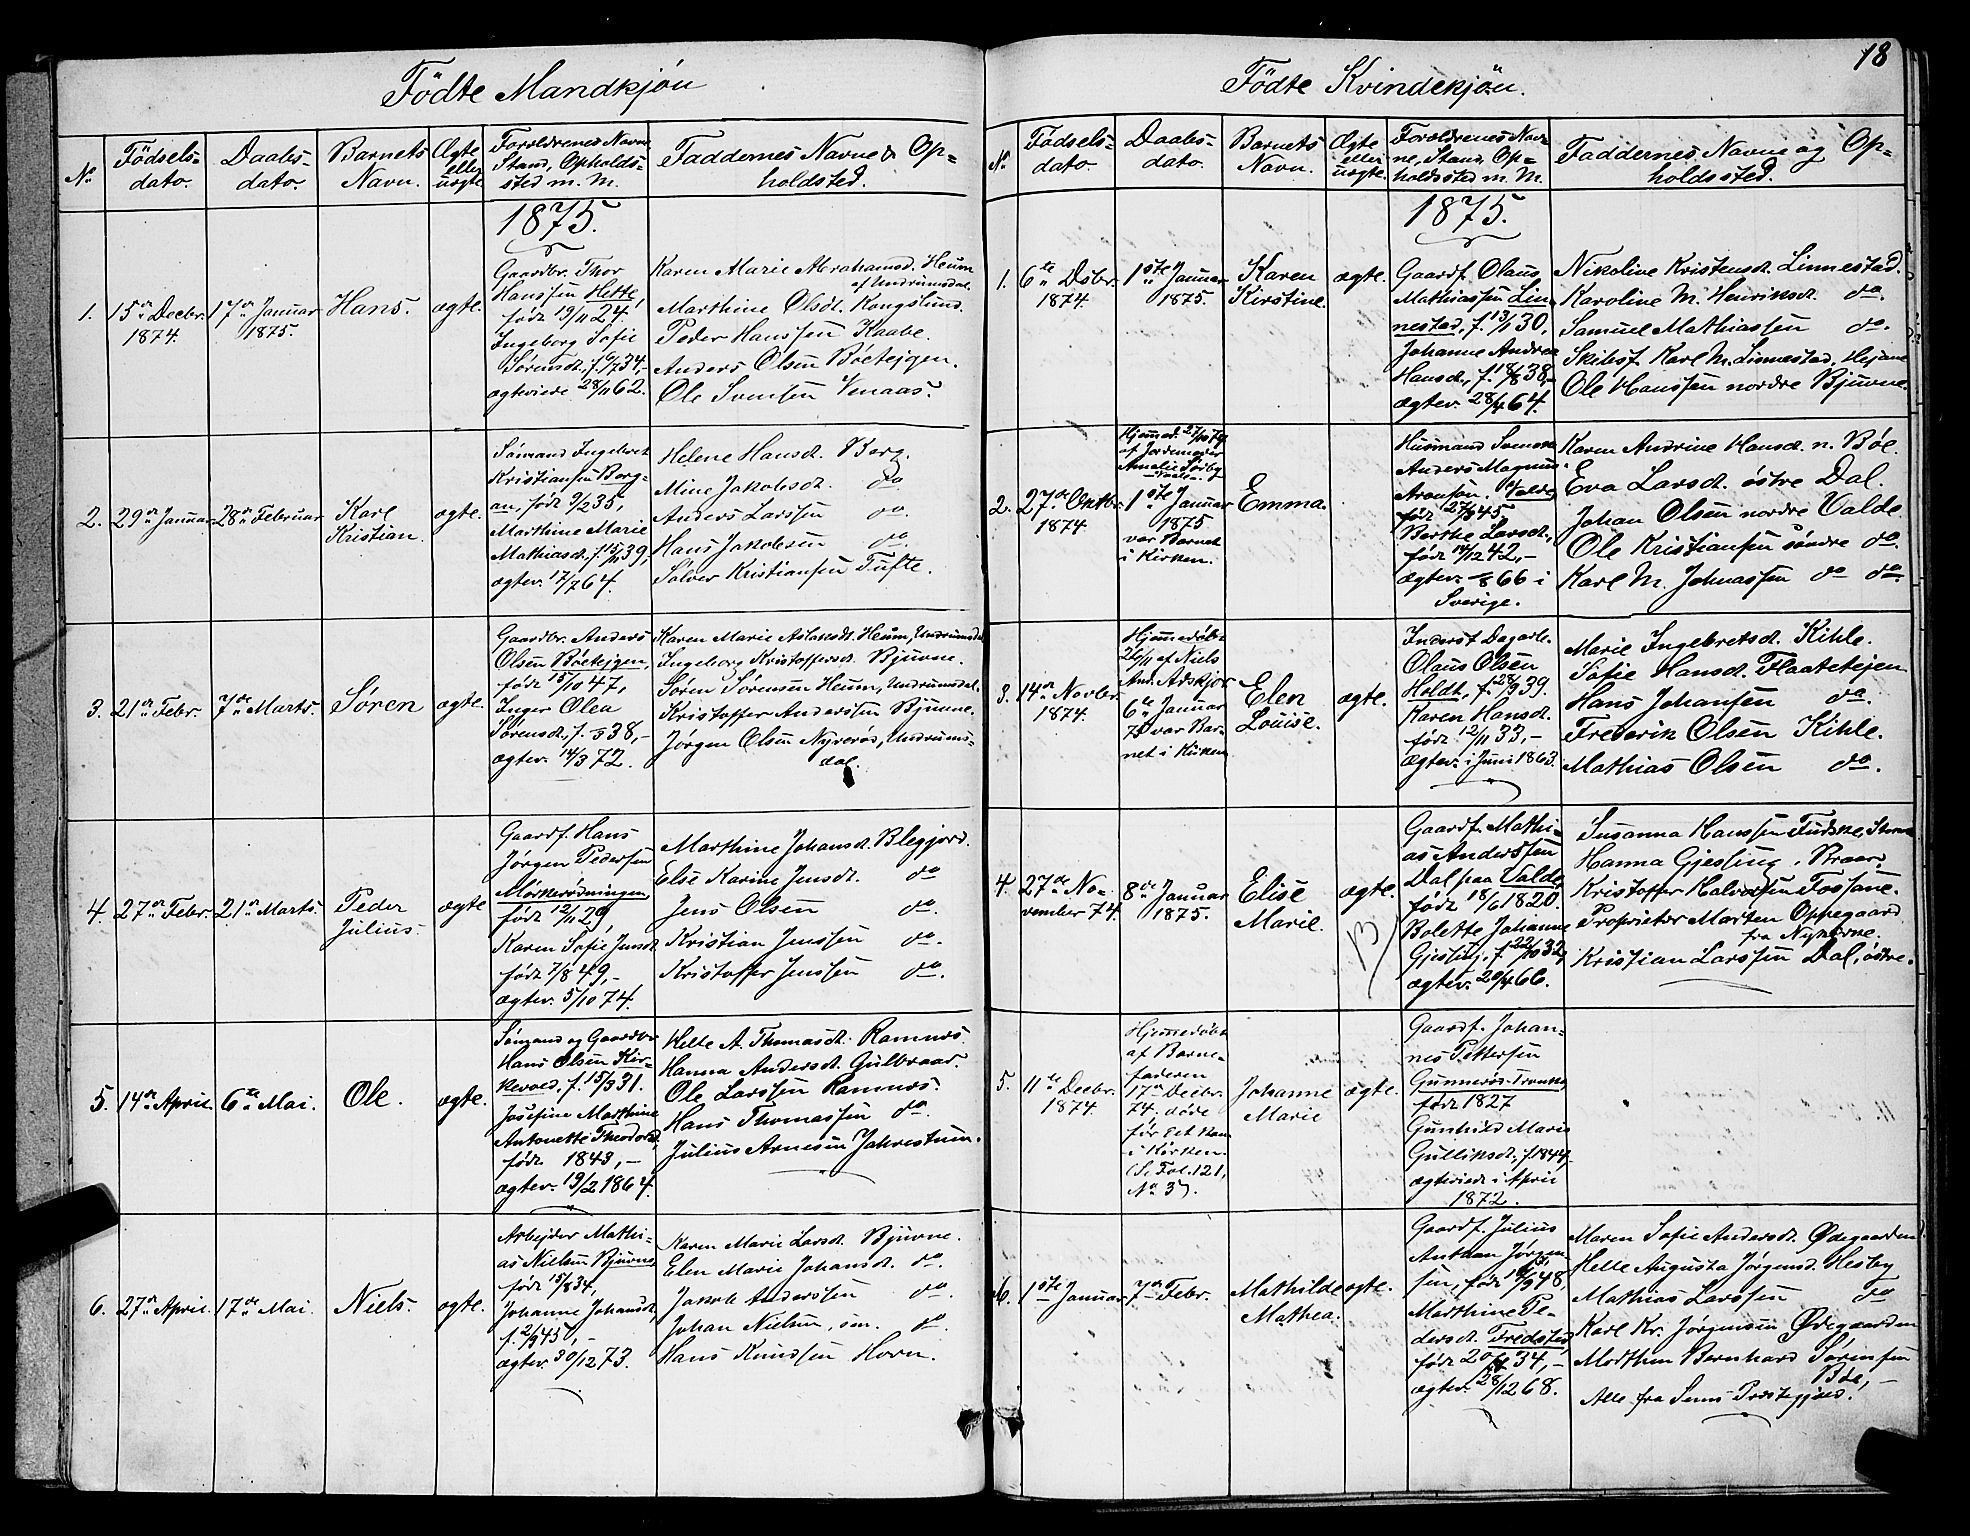 18
Födte Mandkjön
No
Födsels-
dato.
Daabs-
dato.
Barnets
Navn.
Ægte
eller
uægte
Forældrenes Navne,
Stand, Opholds-
sted m. M.
Faddernes Navne & Op-
holdsted.
1875.
1.
15de Decbr.
1874.
17de Januar
1875.
Hans.
ægte.
Gaardbr. Thor
Hanssen Hette,
født 19/11 24,
Ingeborg Sofie
Sørensdt., f. 6/7 34,-
ægteviede 28/11 62.
Karen Marie Abrahamsd. Heum
af Undrumsdal.
Marthine Olsdt. Kongslund.
Peder Hanssen Kaabe.
Anders Olsen Böetejgen.
Ole Svensen Venaas.
2.
29de Januar
28de Februar
Karl
Kristian.
ægte.
Sömand Ingebret
Kristiansen Borg-
an, født 9/2 35,
Marthine Marie
Mathiasd., f. 15/11 39,
ægtev. 17/7 64.
Helene Hansdt. Borg.
Mine Jakobsdt. do
Anders Larssen do
Hans Jakobsen do
Sölver Kristiansen Tufte.
3.
21de Febr.
7de Marts.
Sören
ægte.
Gaardbr. Anders
Olsen Böetejgen,
født 15/10 47,
Inger Olea
Sörensdt., f. 38,-
ægtev. 14/3 72.
Karen Marie Aslaksdt. Heum, Undrumsdal
Ingeborg Kristoffersdt. Bjurne.
Sören Sörensen Heum, Undrumsdal.
Kristoffer Anderssen Bjurne.
Jörgen Olsen Nyeröd, Undrums-
dal.
4.
27de Febr.
21de Marts.
Peder
Julius.
ægte
Gaardf. Hans
Jørgen Pedersen
Mörkerödningen
født 12/11 29,
Karen Sofie Jensdt.
født 7/8 49,-
ægtev. 5/10 74.
Marthine Johansdt. Blegjord.
Else Karine Jensdt. do
Jens Olsen do.
Kristian Jenssen do.
Kristoffer Jenssen do.
5.
14de April.
6te Mai.
Ole.
ægte.
Sömand og Gaardbr.
Hans Olsen Kir-
kevold, f. 15/3 31.
Josefine Marthine
Antonette Theodorsd.
født 1843,-
ægtev. 19/2 1864.
Helte A. Thomasdt. Ramnæs.
Hanna Andersdt. Gulbraar.
Ole Larssen Ramnæs.
Hans Thomassen do.
Julius Arnesen Jahrestuen.
6.
27de April.
17de Mai.
Niels.
ægte.
Arbejder Mathi-
as Nielsen Bjurne,
født 15/8 34,
Johanne Johansdt,
f. 2/9 45,-
ægtev. 30/12 73.
Karen Marie Larsdt. Bjurne.
Elen Marie Johansdt. do.
Jakob Anderssen do.
Johan Nielsen, sen. do.
Hans Knudsen Horn.
Födte Kvindekjön.
No
Födsels-
dato.
Daabs-
dato.
Barnets
Navn.
Ægte
eller
uægte.
Forældrenes Nav-
ne, Stand, Op-
holdssted m. M.
Faddernes Navne og Op-
holdssted.
1875.
1.
6te Dcbr.
1874.
1ste Januar
1875.
Karen
Kirstine.
ægte.
Gaardf. Olaus
Mathiassen Lin-
nestad, f. 13/1 30,
Johanne Andrea
Hansd., f. 18/8 38,-
ægtev. 28/4 64.
Nikoline Kristensdt. Linnestad.
Karoline M. Henriksdt. do.
Samuel Mathiassen do.
Skibsf. Karl M. Linnestad, Hejane
Ole Hanssen nordre Bjurne.
2.
27de Oktbr.
1874.
Hjemmed. 27/10 74
af Jordemoder
Amalie Sörby
1ste Januar
1875
var Barnet
i Kirken.
Emma.
Husmand Svenske
Anders Magnus
Aronsön, Valde
født 27/9 45,
Berthe Larsdt.,
født 14/12 42,-
ægtev. /8 66 i
Sverige.
Karen Andrine Hansdt. n. Böe.
Eva Larsdt. östre Dal.
Johan Olsen nordre Valde
Ole Kristiansen söndre do.
Karl M. Johnassen do do
3.
14de Novbr.
1874.
Hjemmedöbt
26/11 af Niels
And. Adskjær
6te Januar
75 var Bar-
net i Kirken.
Elen
Louise.
ægte.
Inderst Dagarb.
Olaus Olsen
Holdt, f. 28/9 39.
Karen Hansdt.
født 12/11 33,-
ægtev. i Juni 1863.
Marie Ingebretsdt. Kihle.
Sofie Hansdt. Flaatetejen
Hans Johansen do.
Frederik Olsen Kihle.
Mathias Olsen do.
4.
27de No-
vember 74.
8de Januar
1875.
Elise
Marie.
ægte.
B
Gaardf. Mathi-
as Anderssen
Dal paa Valde,
født 18/6 1820.
Bolette Johanne
Gjesting, f. 22/10 32,
ægtev. 20/4 66.
Susanna Hanssen Fudske,
Hanna Gjesting, Braar.
Kristoffer Halvorsen Fossane.
Proprietær Morten Oppegaard
fra Nykirke.
Kristian Larssen Dal, östre.
5.
11te Decbr.
1874.
Hjemmedöbt
af Barne-
faderen
17de Decbr.
74. döde
för det kom
i Kirken.
(S. Fol. 121,
No 37).
Johanne
Marie
ægte.
Gaardf. Johan-
nes Pettersen
Gunneröd
født 1827
Gunhild Marie
Gulliksdt., f. 1844,
ægteviede i April
1872.
6.
1ste Januar
7de Febr.
Mathilde
Mathea.
ægte.
Gaardf. Julius
Anthon Jörgen-
sen, født 19/9 48,
Marthine Pe-
dersdt. Fredsted
født 20/4 34,-
ægtev. 28/12 68.
Maren Sofie Andersdt. Ødegaarden
Helle Augusta Jörgensd. Hesby
Mathias Larssen do
Karl Kr. Jörgensen Ødegaarden
Morthen Bernhard Sörensen
Böe,-
Alle fra Sems Præstegjeld.